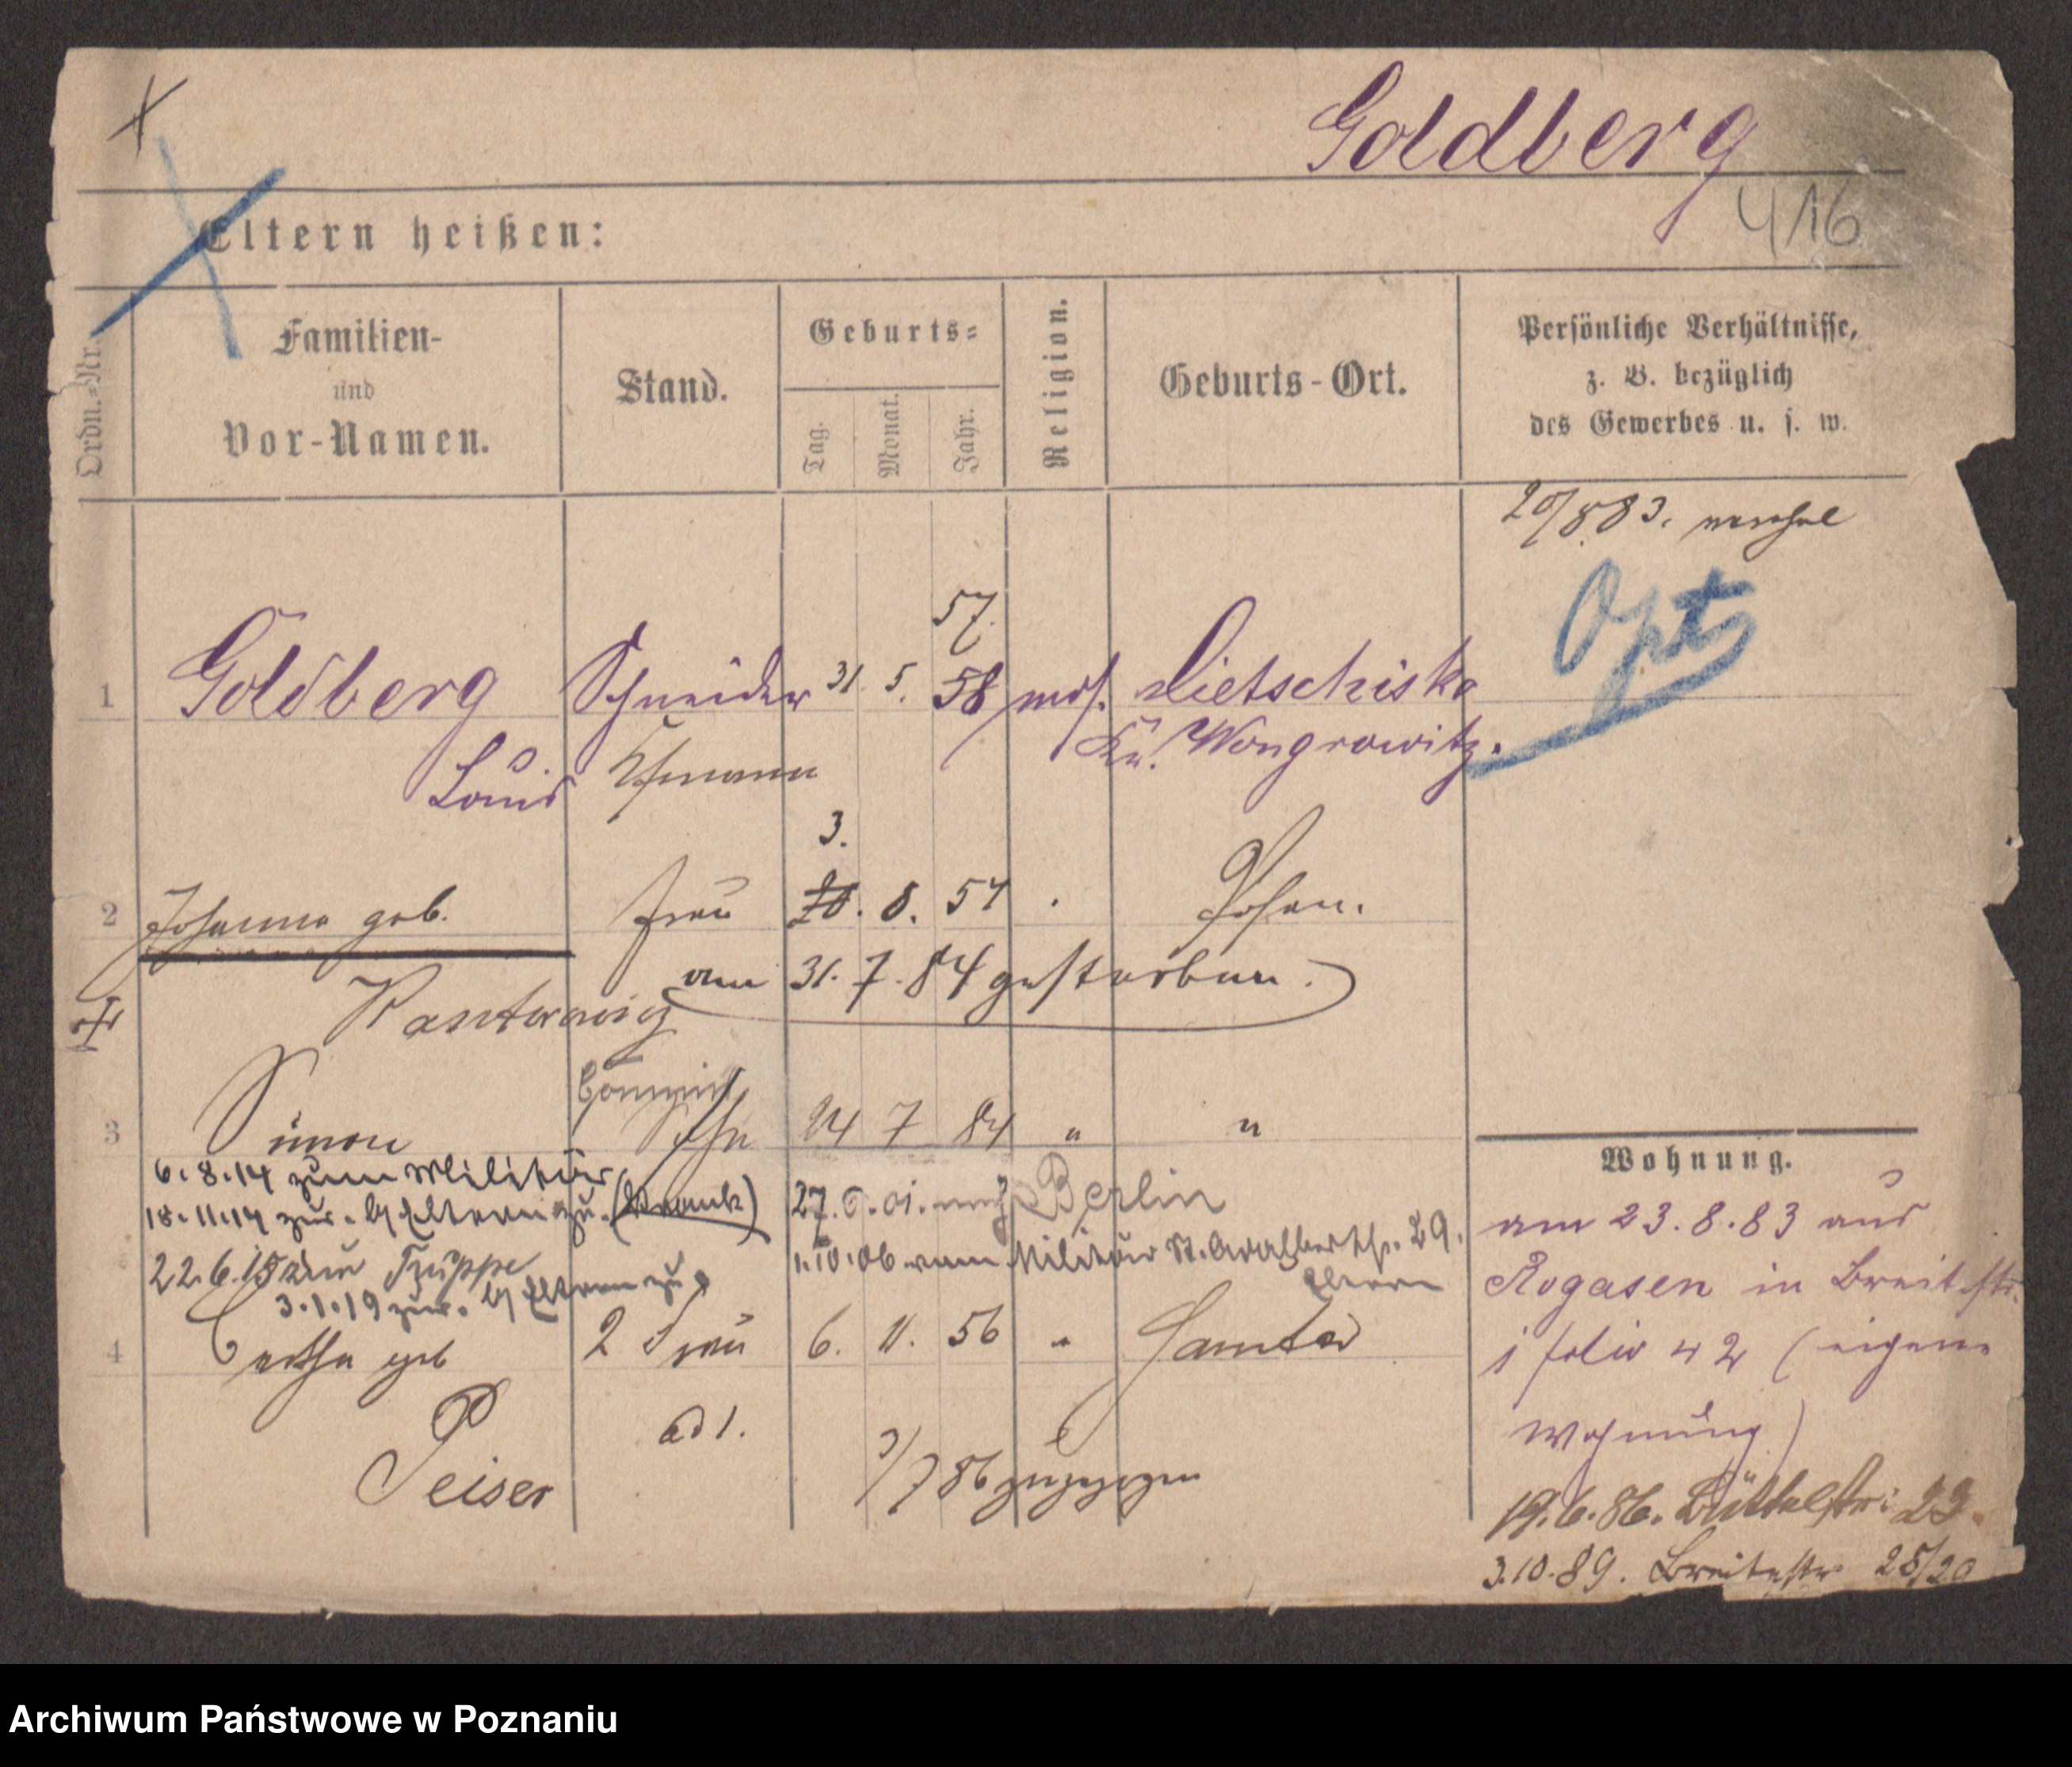 Goldberg
416
Eltern heißen:
Ordn.-Nr.
Familien-
und
Vor-Namen.
Stand.
Geburts-
Tag.
Monat.
Jahr.
Religion.
Geburts-Ort.
Persönliche Verhältnisse,
z. B. bezüglich
des Gewerbes u. s. w.
20/8 83.
57.
Opt
1 Goldberg Schneider 31. 5. 58 mos. Lietschiska
Kr. Wongrowitz.
Louis Ehmann
3.
2 Johanna geb. Frau 8. 57 Posen.
am 31. 7. 84 gestorben.
Kantorowicz
Commis
3 Simon Sohn 24 7 84 " "
6.8.14 zum Militär
18.11.14 zur. b/ Eltern zu. (krank)
27. 01. nach Berlin
22.6.15 zur Truppe
1.10.06 vom Militär St. Adalbertstr. 29.
Eltern
3.1.19 zur. b/ Eltern zu
4 Bertha geb 2 Frau 6. 11. 56 " Samter
Peiser
ad 1.
3/7 86 zugezogen
Wohnung.
am 23.8.83 aus
Rogasen in Breitestr.
folio 42 (eigene
Wohnung)
19.6.86. Büttelstr: 23.
3.10.89. Breitestr 25/20
Archiwum Państwowe w Poznaniu